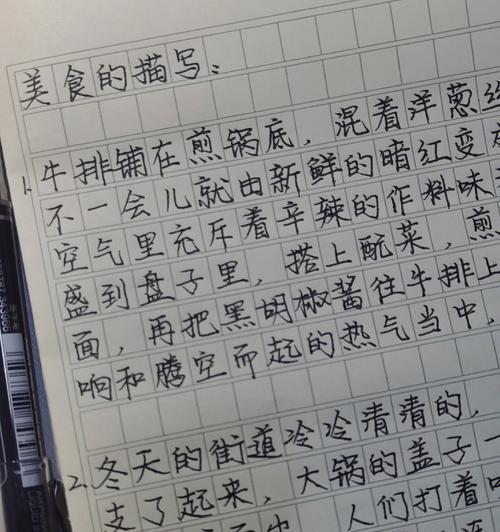 美食的描写：
1. 牛排铺在煎锅底，混着洋葱丝
不一会儿就由新鲜的暗红变
空气里充斥着辛辣的作料味
盛到盘子里，搭上酝菜，煎
面，再把黑胡椒酱往牛排上
响和腾空而起的热气当中，
2. 冬天的街道冷冷清清的，
支了起来，大锅的盖子一
人们打着